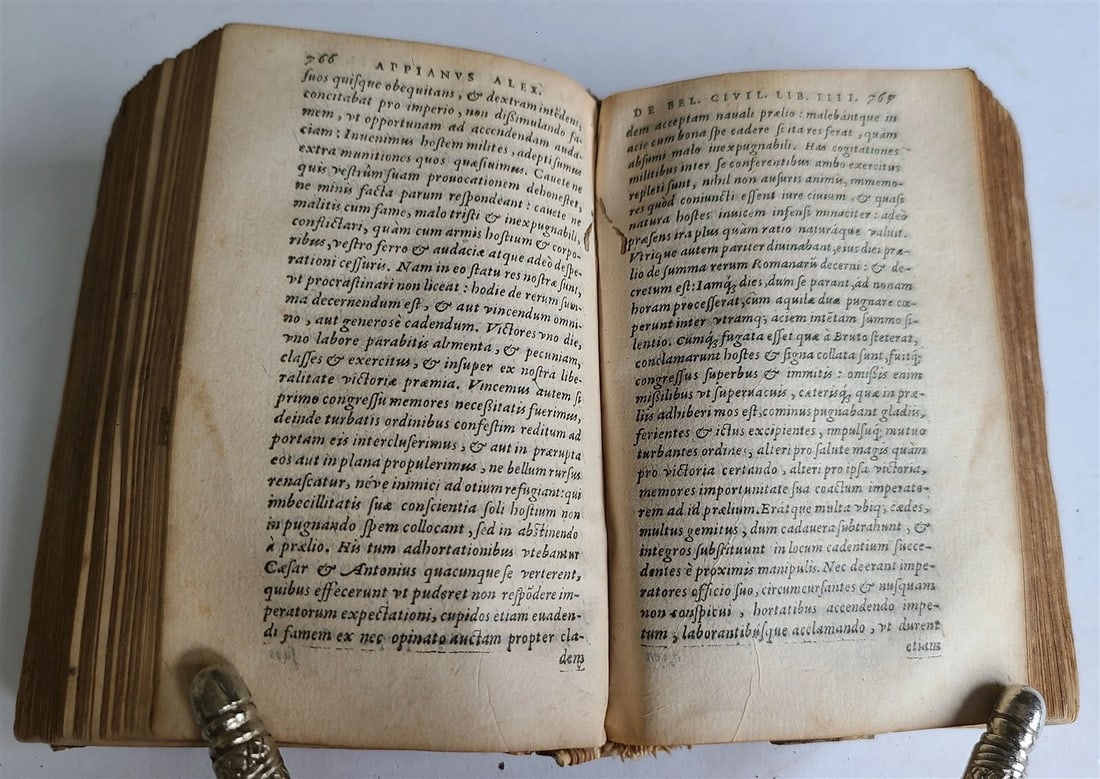 766 APPIANVS ALEX.
ſuos quiſque obequitans, & dextram intẽdens,
concitabat pro imperio, non diſsimulando fa-
mem, vt opportunam ad accendendam auda-
ciam: Inuenimus hoſtem milites, adepti ſumus
extra munitiones quos quæſiuimus. Cauete ne
quis veſtrûm ſuam prouocationem dehoneſtet,
ne minis facta parum reſpondeant: cauete ne
malitis cum fame, malo triſti & inexpugnabili,
conflictari, quàm cum armis hoſtium & corpo-
ribus, veſtro ferro & audaciæ atque adeò deſpe-
rationi ceſſuris. Nam in eo ſtatu res noſtræ ſunt,
vt procraſtinari non liceat: hodie de rerum ſum-
ma decernendum eſt, & aut vincendum omni-
no, aut generosè cadendum. Victores vno die,
vno labore parabitis alimenta, & pecuniam,
claſſes & exercitus, & inſuper ex noſtra libe-
ralitate victoriæ præmia. Vincemus autem ſi
primo congreſſu memores neceſsitatis fuerimus,
deinde turbatis ordinibus confeſtim reditum ad
portam eis intercluſerimus, & aut in prærupta
eos aut in plana propulerimus, ne bellum rurſus
renaſcatur, néve inimici ad otium refugiant: qui
imbecillitatis ſuæ conſcientia ſoli hoſtium non
in pugnando ſpem collocant, ſed in abſtinendo
à prælio. His tum adhortationibus vtebantur
Cæſar & Antonius quacunque ſe verterent,
quibus effecerunt vt puderet non reſpõdere im-
peratorum expectationi, cupidos etiam euaden-
di famem ex nec opinato auctam propter cla-
dem
DE BEL. CIVIL. LIB. IIII. 767
dem acceptam nauali prælio: malebántque in
acie cum bona ſpe cadere ſi ita res ferat, quàm
abſumi malo inexpugnabili. Has cogitationes
militibus inter ſe conferentibus ambo exercitus
repleti ſunt, nihil non auſuris animis, immemo-
res quòd coniuncti eſſent iure ciuium, & quaſi
natura hoſtes inuicem infenſi minaciter: adeò
præſens ira plus quàm ratio naturáque valuit.
Vtrique autem pariter diuinabant, eius diei præ-
lio de ſumma rerum Romanarũ decerni: & de-
cretum eſt: Iamq́; dies, dum ſe parant, ad nonam
horam proceſſerat, cùm aquilæ duæ pugnare cœ-
perunt inter vtramq; aciem intẽtam ſummo ſi-
lentio. Cumq́; fugata eſſet quæ à Bruto ſteterat,
conclamarunt hoſtes & ſigna collata ſunt, fuitq́;
congreſſus ſuperbus & immitis: omiſsis enim
miſsilibus vt ſuperuacuis, cæteriſq́; quæ in præ-
liis adhiberi mos eſt, cominus pugnabant gladiis,
ferientes & ictus excipientes, impulſuq́; mutuo
turbantes ordines, alteri pro ſalute magis quàm
pro victoria certando, alteri pro ipſa victoria,
memores importunitate ſua coactum imperato-
rem ad id prælium. Erat que multa vbiq; cædes,
multus gemitus, dum cadauera ſubtrahunt, &
integros ſubſtituunt in locum cadentium ſucce-
dentes è proximis manipulis. Nec deerant impe-
ratores officio ſuo, circumcurſantes & nuſquam
non conſpicui, hortatibus accendendo impe-
tum, laborantibúſque acclamando, vt durent
etiam